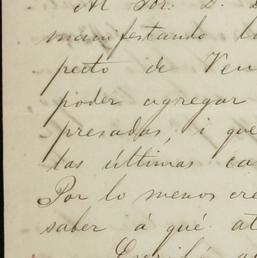 Al Sor. D.
manifestando
pecto de Ven
poder agregar
presadas, i que
las últimas ca
Por lo menos cre
saber á qué at